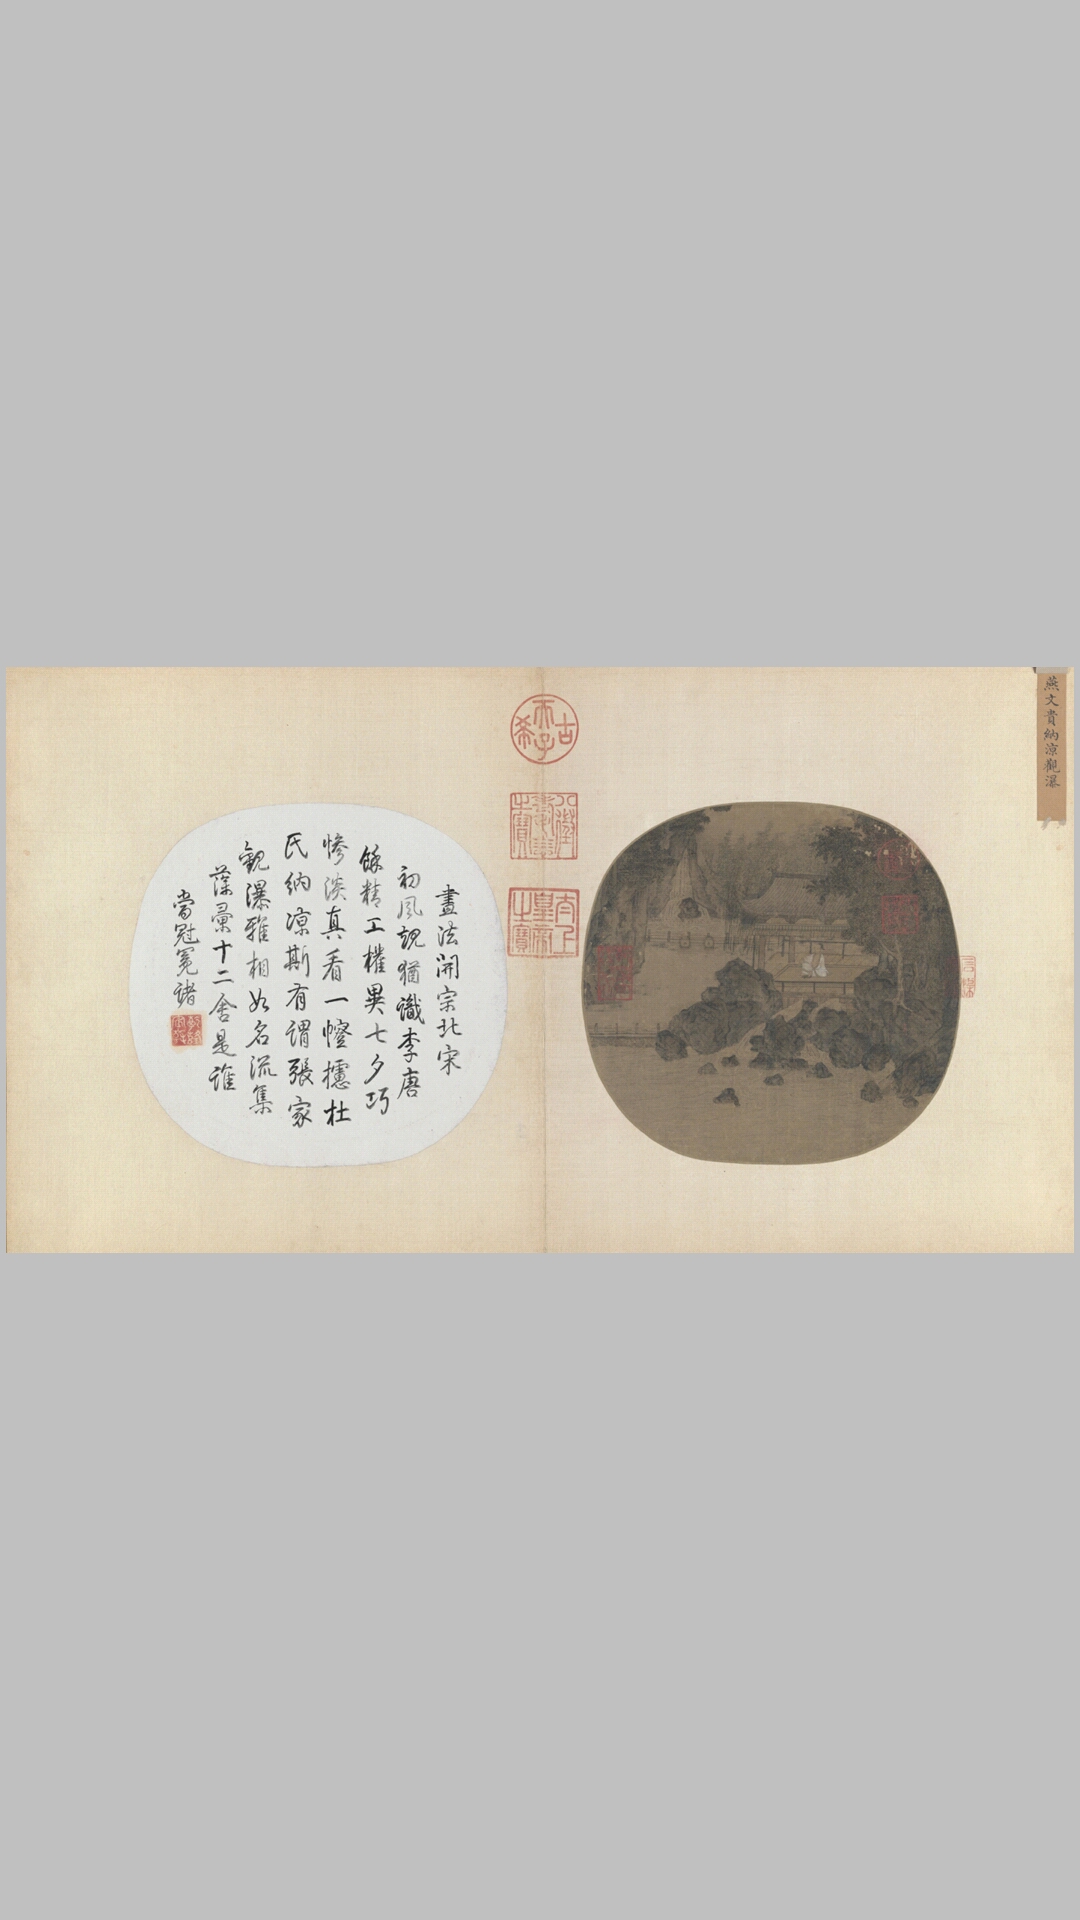 燕文貴納涼觀瀑
古希天子
八徵耄念之寶
太上皇帝之寶
畫法開宗北宋
初風規猶識李唐
餘精工權異七夕巧
慘淡真看一幛攄杜
氏納涼斯有謂張家
觀瀑雅相如名流集
藻彙十二舍是誰
當冠冕諸